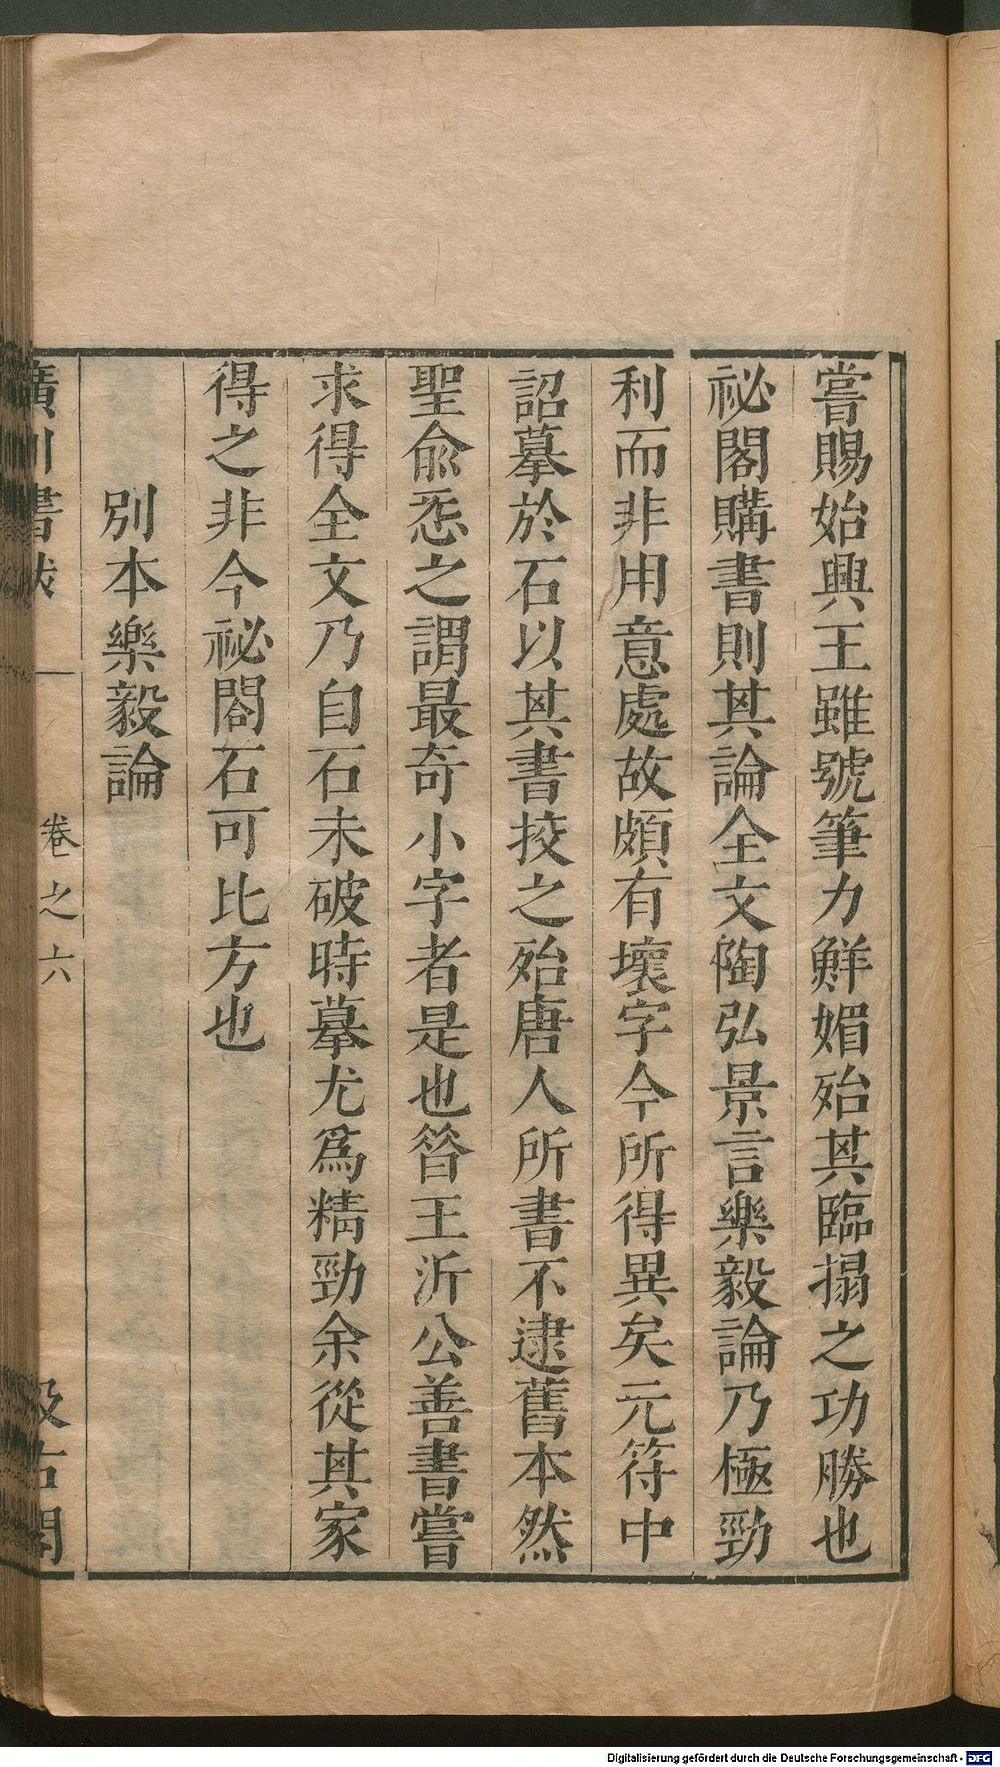 嘗賜始興王雖號筆力鮮媚殆其臨搨之功勝也
祕閣購書則其論全文陶弘景言樂毅論乃極勁
利而非用意處故頗有壞字今所得異矣元符中
詔摹於石以其書挍之殆唐人所書不逮舊本然
聖俞悉之謂最奇小字者是也昝王沂公善書嘗
求得全文乃自石未破時摹尤爲精勁余從其家
得之非今祕閣石可比方也
別本樂毅論
廣川書跋
卷之六
汲古閣
Digitalisierung gefördert durch die Deutsche Forschungsgemeinschaft - DFG